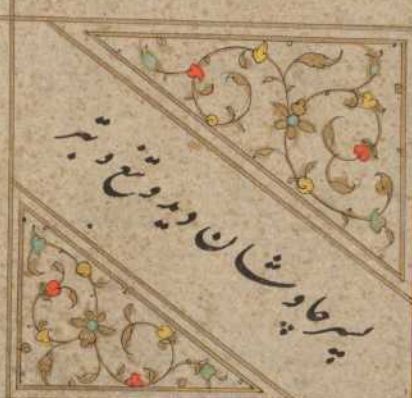 پسر چاوشان دید و تیغ و تبر